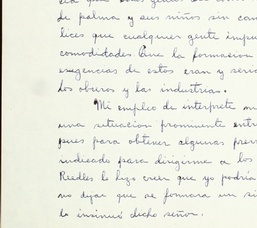 de palma y sus niños sin
lices que cualquier gente
comodidades. Que la formacion
exigencias de estos eran y
los obreros y las industrias.
Mi empleo de interprete
una situacion prominente
pues para obtener algunas
indicado para dirigirme a los
Reedles lo hizo creer que yo podría
no dejar que se formara un
lo insinuó dicho señor.